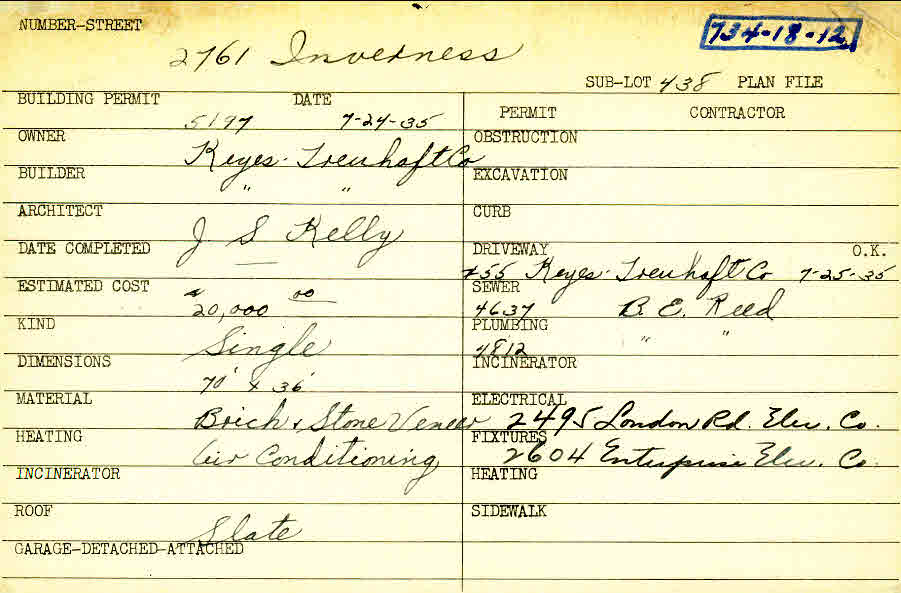 NUMBER-STREET
2761 Inverness
734-18-12
SUB-LOT 438 PLAN FILE
BUILDING PERMIT DATE
5197 7-24-35
OWNER
Keyes-Treuhaft Co
BUILDER
" "
ARCHITECT
J S Kelly
DATE COMPLETED
—
ESTIMATED COST
$20,000 00
KIND
Single
DIMENSIONS
70' x 36'
MATERIAL
Brick & Stone Veneer
HEATING
Air Conditioning
INCINERATOR
ROOF
Slate
GARAGE-DETACHED-ATTACHED
PERMIT CONTRACTOR
OBSTRUCTION
EXCAVATION
CURB
DRIVEWAY O.K.
#55 Keyes-Treuhaft Co 7-25-35
SEWER
4637 B. E. Reed
PLUMBING
4812 " "
INCINERATOR
ELECTRICAL
2495 London Rd. Elec. Co.
FIXTURES
2604 Enterprise Elec. Co.
HEATING
SIDEWALK